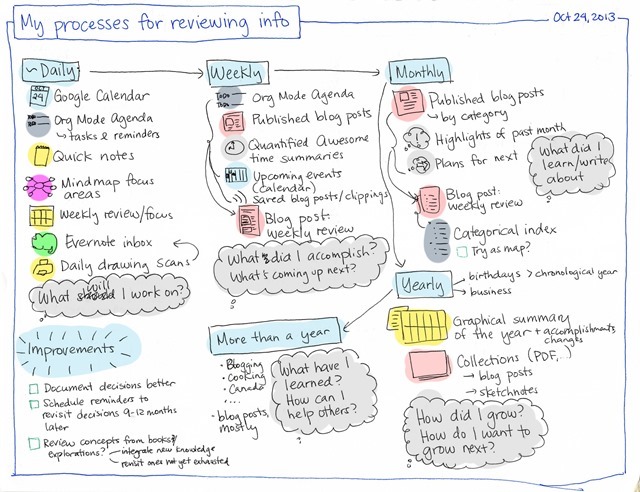 My processes for reviewing info
Oct 24, 2013
~Daily
Google Calendar
Org Mode Agenda
↳ tasks & reminders
Quick notes
Mindmap focus
areas
Weekly review/focus
Evernote inbox
Daily drawing scans
What will I work on?
Weekly
Org Mode Agenda
Published blog posts
Quantified Awesome
time summaries
Upcoming events
(calendar)
Saved blog posts/clippings
Blog post:
weekly review
What did I accomplish?
What's coming up next?
Monthly
Published blog posts
↳ by category
Highlights of past month
Plans for next
Blog post:
weekly review
Categorical index
Try as map?
What did I
learn/write
about
Yearly
→ birthdays > chronological year
→ business
Graphical summary
of the year + accomplishments
changes
Collections (PDF,...)
→ blog posts
→ sketchnotes
How did I grow?
How do I want to
grow next?
More than a year
• Blogging
• Cooking
• Canada
• ...
• blog posts,
mostly
What have I
learned?
How can I
help others?
Improvements
Document decisions better
Schedule reminders to
revisit decisions 9-12 months
later
Review concepts from books/
explorations?
integrate new knowledge
revisit ones not yet exhausted